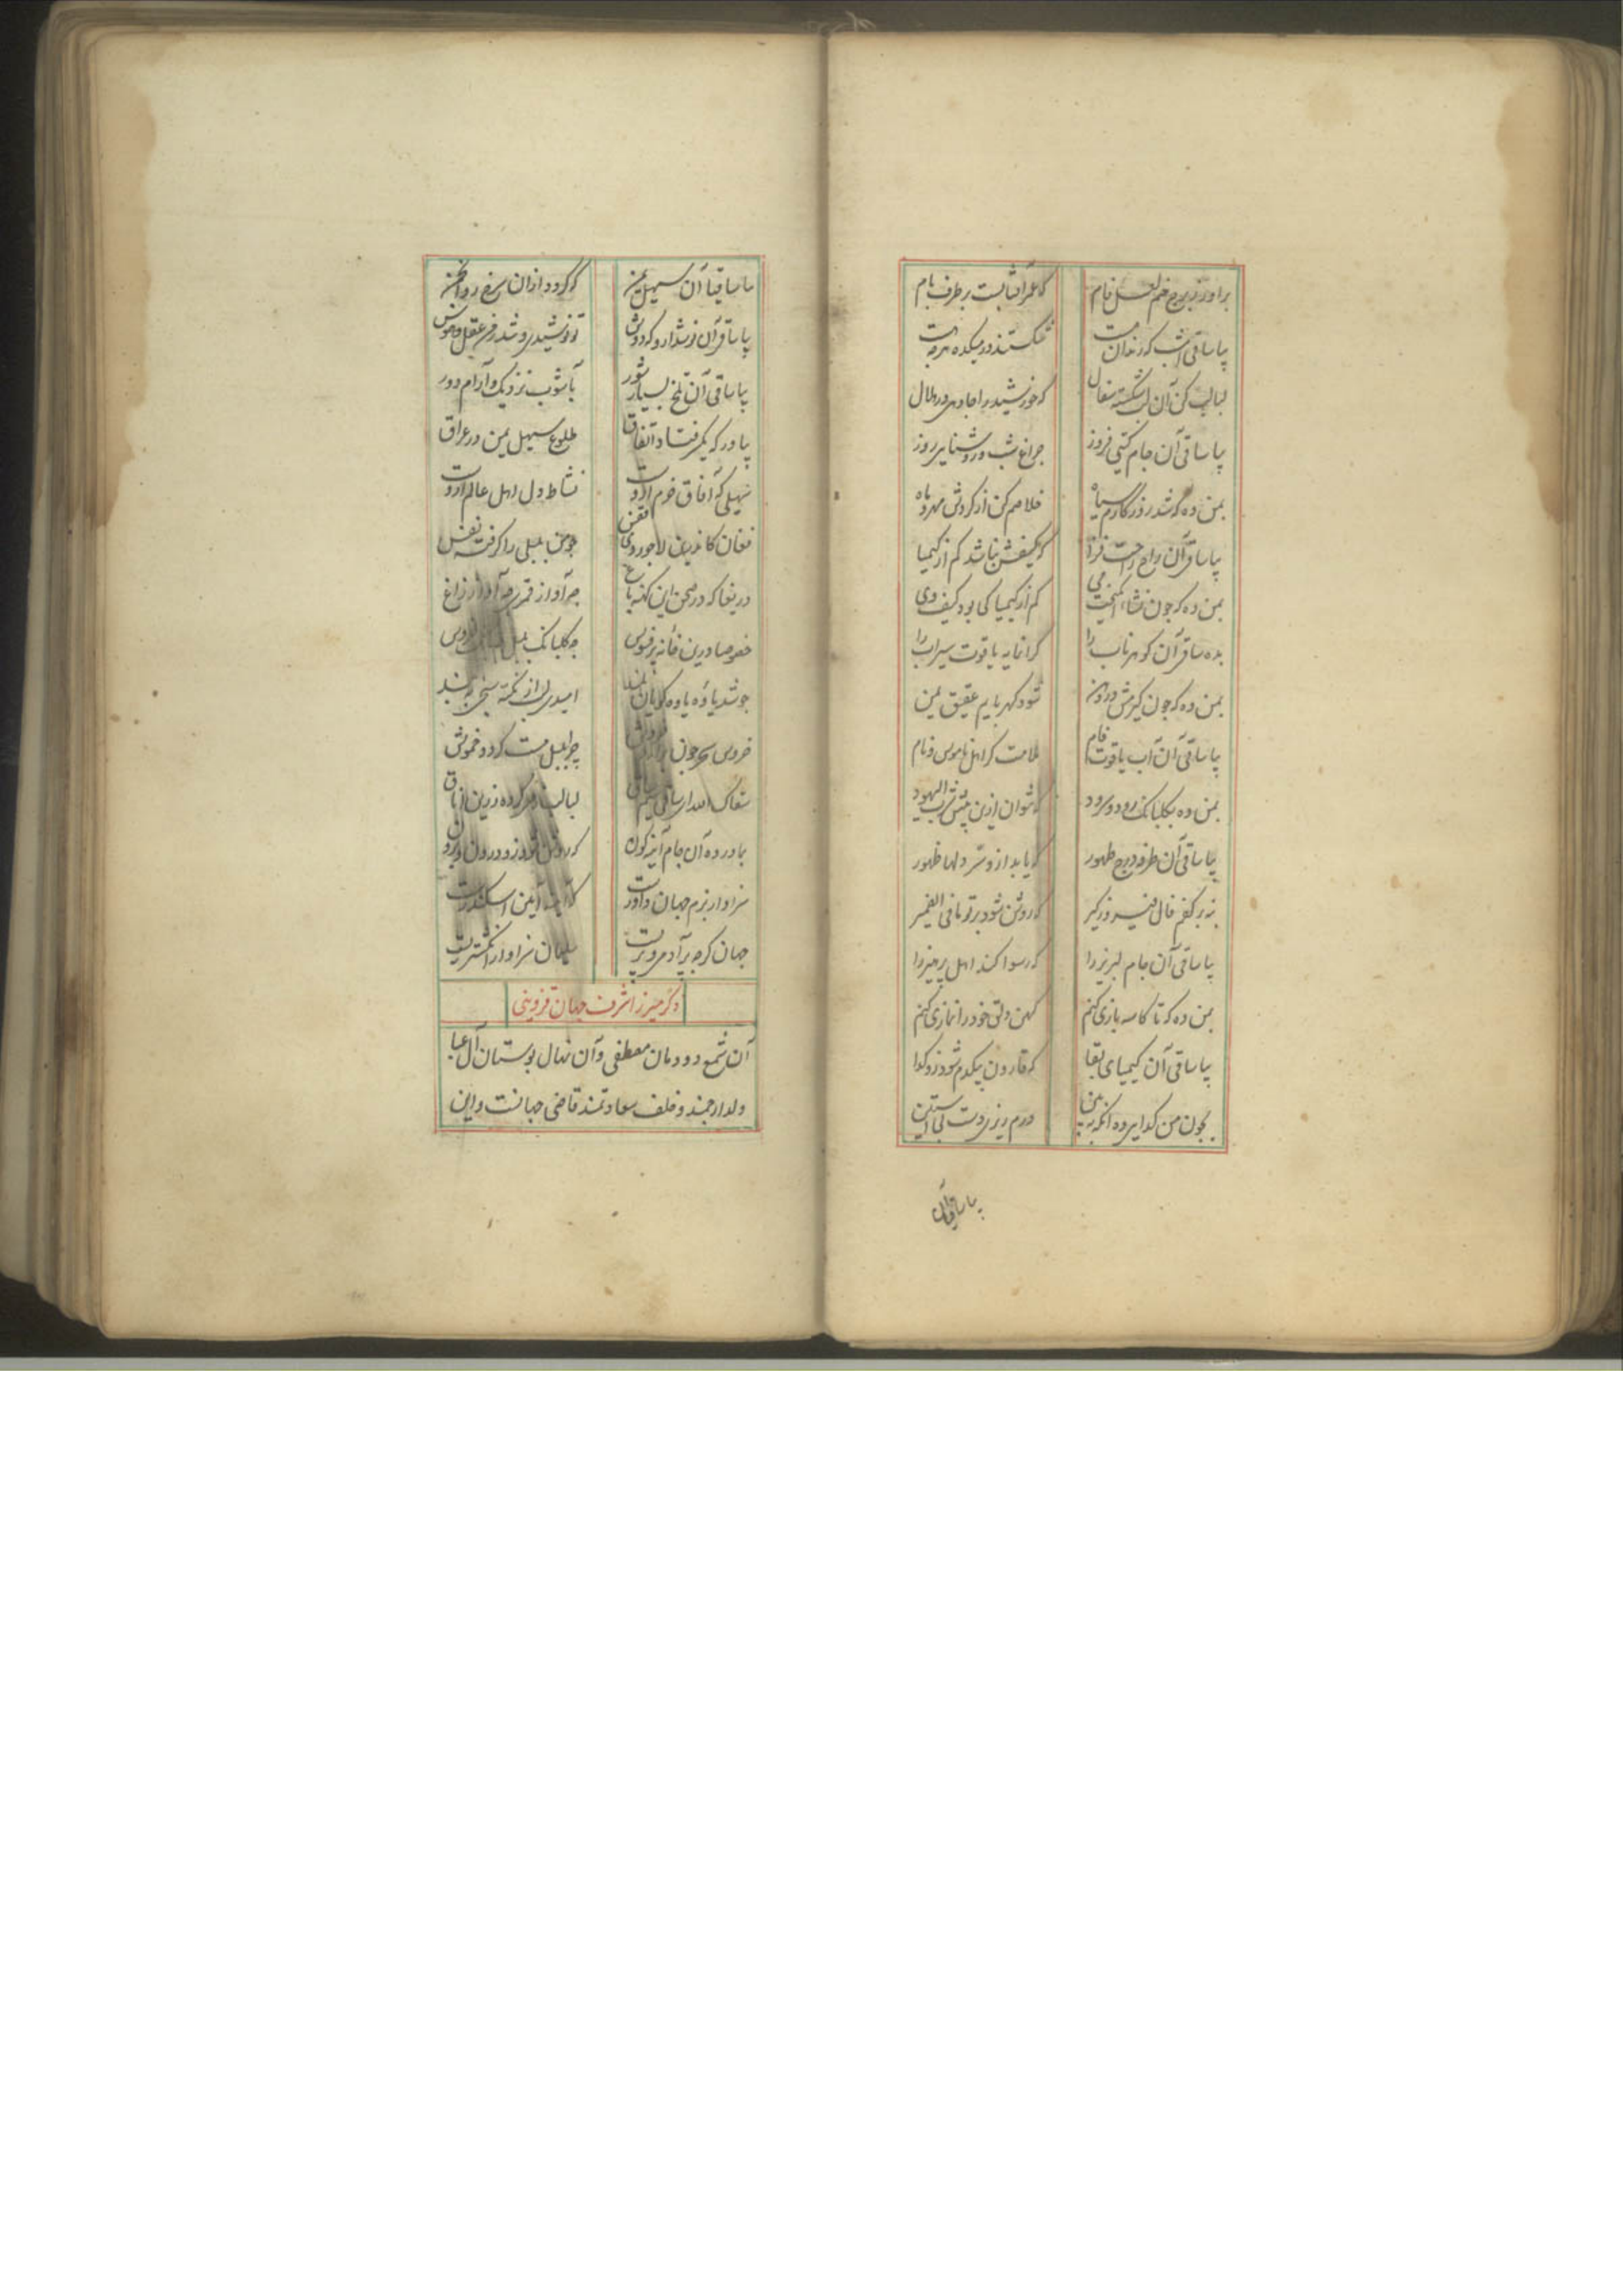 برآور ز برج خم لعل فام که عمر آفتابیست بر طرف بام
بیا ساقی آن که رندان مست شکستند در میکده هر چه هست
لبالب کن آن لب شکسته سفال که خورشید را جا دهی در هلال
بیا ساقی آن جام گیتی فروز چراغ شب و روشنایی روز
بمن ده که شد روزگارم سیاه خلاصم کن از گردش مهر و ماه
بیا ساقی آن راح راحت فزا که کیفش نباشد کم از کیمیا
بمن ده که چون نشاء می کم از کیمیا کی بود کیف وی
بده ساقی آن گوهر ناب را گرانمایه یاقوت سیراب را
بمن ده که چون گیرمش در دهن شود کهربایم عقیق یمن
بیا ساقی آن آب یاقوت فام ملامت گر اهل ناموس و نام
بمن ده بگلبانگ رود و سرود که نتوان ازین بیش
بیا ساقی آن طرفه درج ظهور که یابد ازو سر دلها ظهور
بنه بر کفم فال فیروز گیر که روشن شود بر تو ما فی الضمیر
بیا ساقی آن جام لبریز را که رسوا کند اهل پرهیز را
بمن ده که تا کاسه بازی کنم کهن دلق خود را نمازی کنم
بیا ساقی آن کیمیای بقا که قارون بیکدم شود زو گدا
بچون من گدایی ده آنگه ببین درم ریزی دست بی آستین
بیا ساقی آن
بیا ساقیا آن سهیل یمن که گردد ازان سرخ رو انجمن
بیا ساقی آن نوشدارو که دوش تو نوشیدی و شد ز من عقل و هوش
بیا ساقی آن تلخ بسیار شور بآشوب نزدیک و آرام دور
بیاور که کم رفتد اتفاق طلوع سهیل یمن در عراق
سهیلی که آفاق خرم ازوست نشاط دل اهل عالم ازوست
فغان کاندرین لاجوردی قفس چو من بلبلی را گرفته نفس
دریغا که در صحن این کهنه باغ چه آواز قمری چه آواز زاغ
خصوصا درین خانه پر فسوس چه گلبانگ بلبل
چو شد یاوه یاوه گویان بلند امیدی لب از نکته سنجی ببند
خروس سحر چون چرا بلبل مست گردد خموش
سقاک الله ای ساقی لبالب کرده زرین ایاق
بیا در ده آن جام آینه گون که روشن شود زو درون و برون
سزاوار بزم جهان داورست که آیینه آیین اسکندرست
جهان گر چه پر آدمی و پریست سلیمان سزاوار انگشتریست
ذکر میرزا شرف جهان قزوینی
آن شمع دودمان مصطفی و آن نهال بوستان آل عبا
ولد ارجمند و خلف سعادتمند قاضی جهانست و این